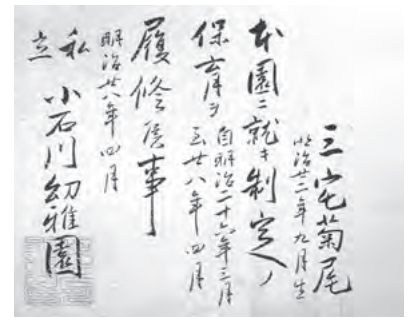 三宅菊尾
明治廿二年九月生
本園ニ就キ制定ノ
保育ヲ
自明治二十六年三月
至廿八年四月
履修候事
明治廿八年四月
私立
小石川幼稚園